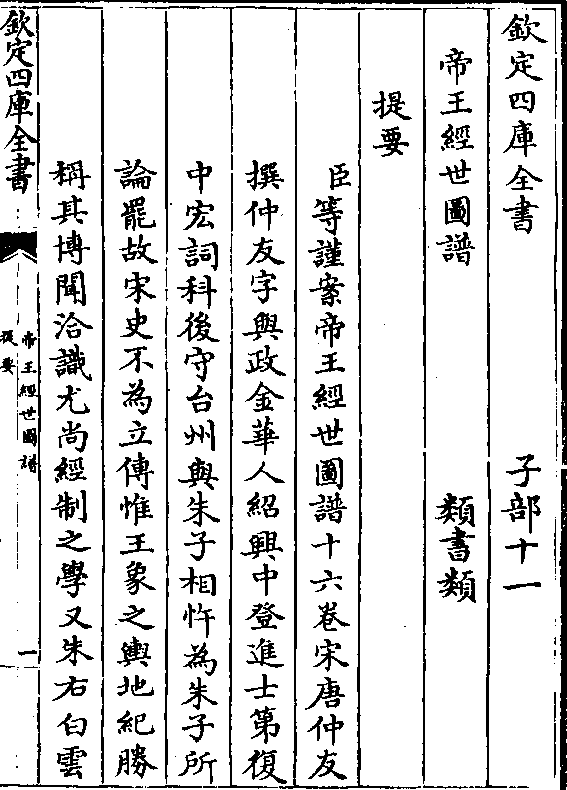 欽定四庫全書 子部十一
帝王經世圖譜 類書類
提要
臣等謹案帝王經世圖譜十六卷宋唐仲友
撰仲友字與政金華人紹興中登進士第復
中宏詞科後守台州與朱子相忤為朱子所
論罷故宋史不為立傳惟王象之輿地紀勝
稱其博聞洽識尤尚經制之學又朱右白雲
欽定四庫全書
帝王經世圖譜
提要
一